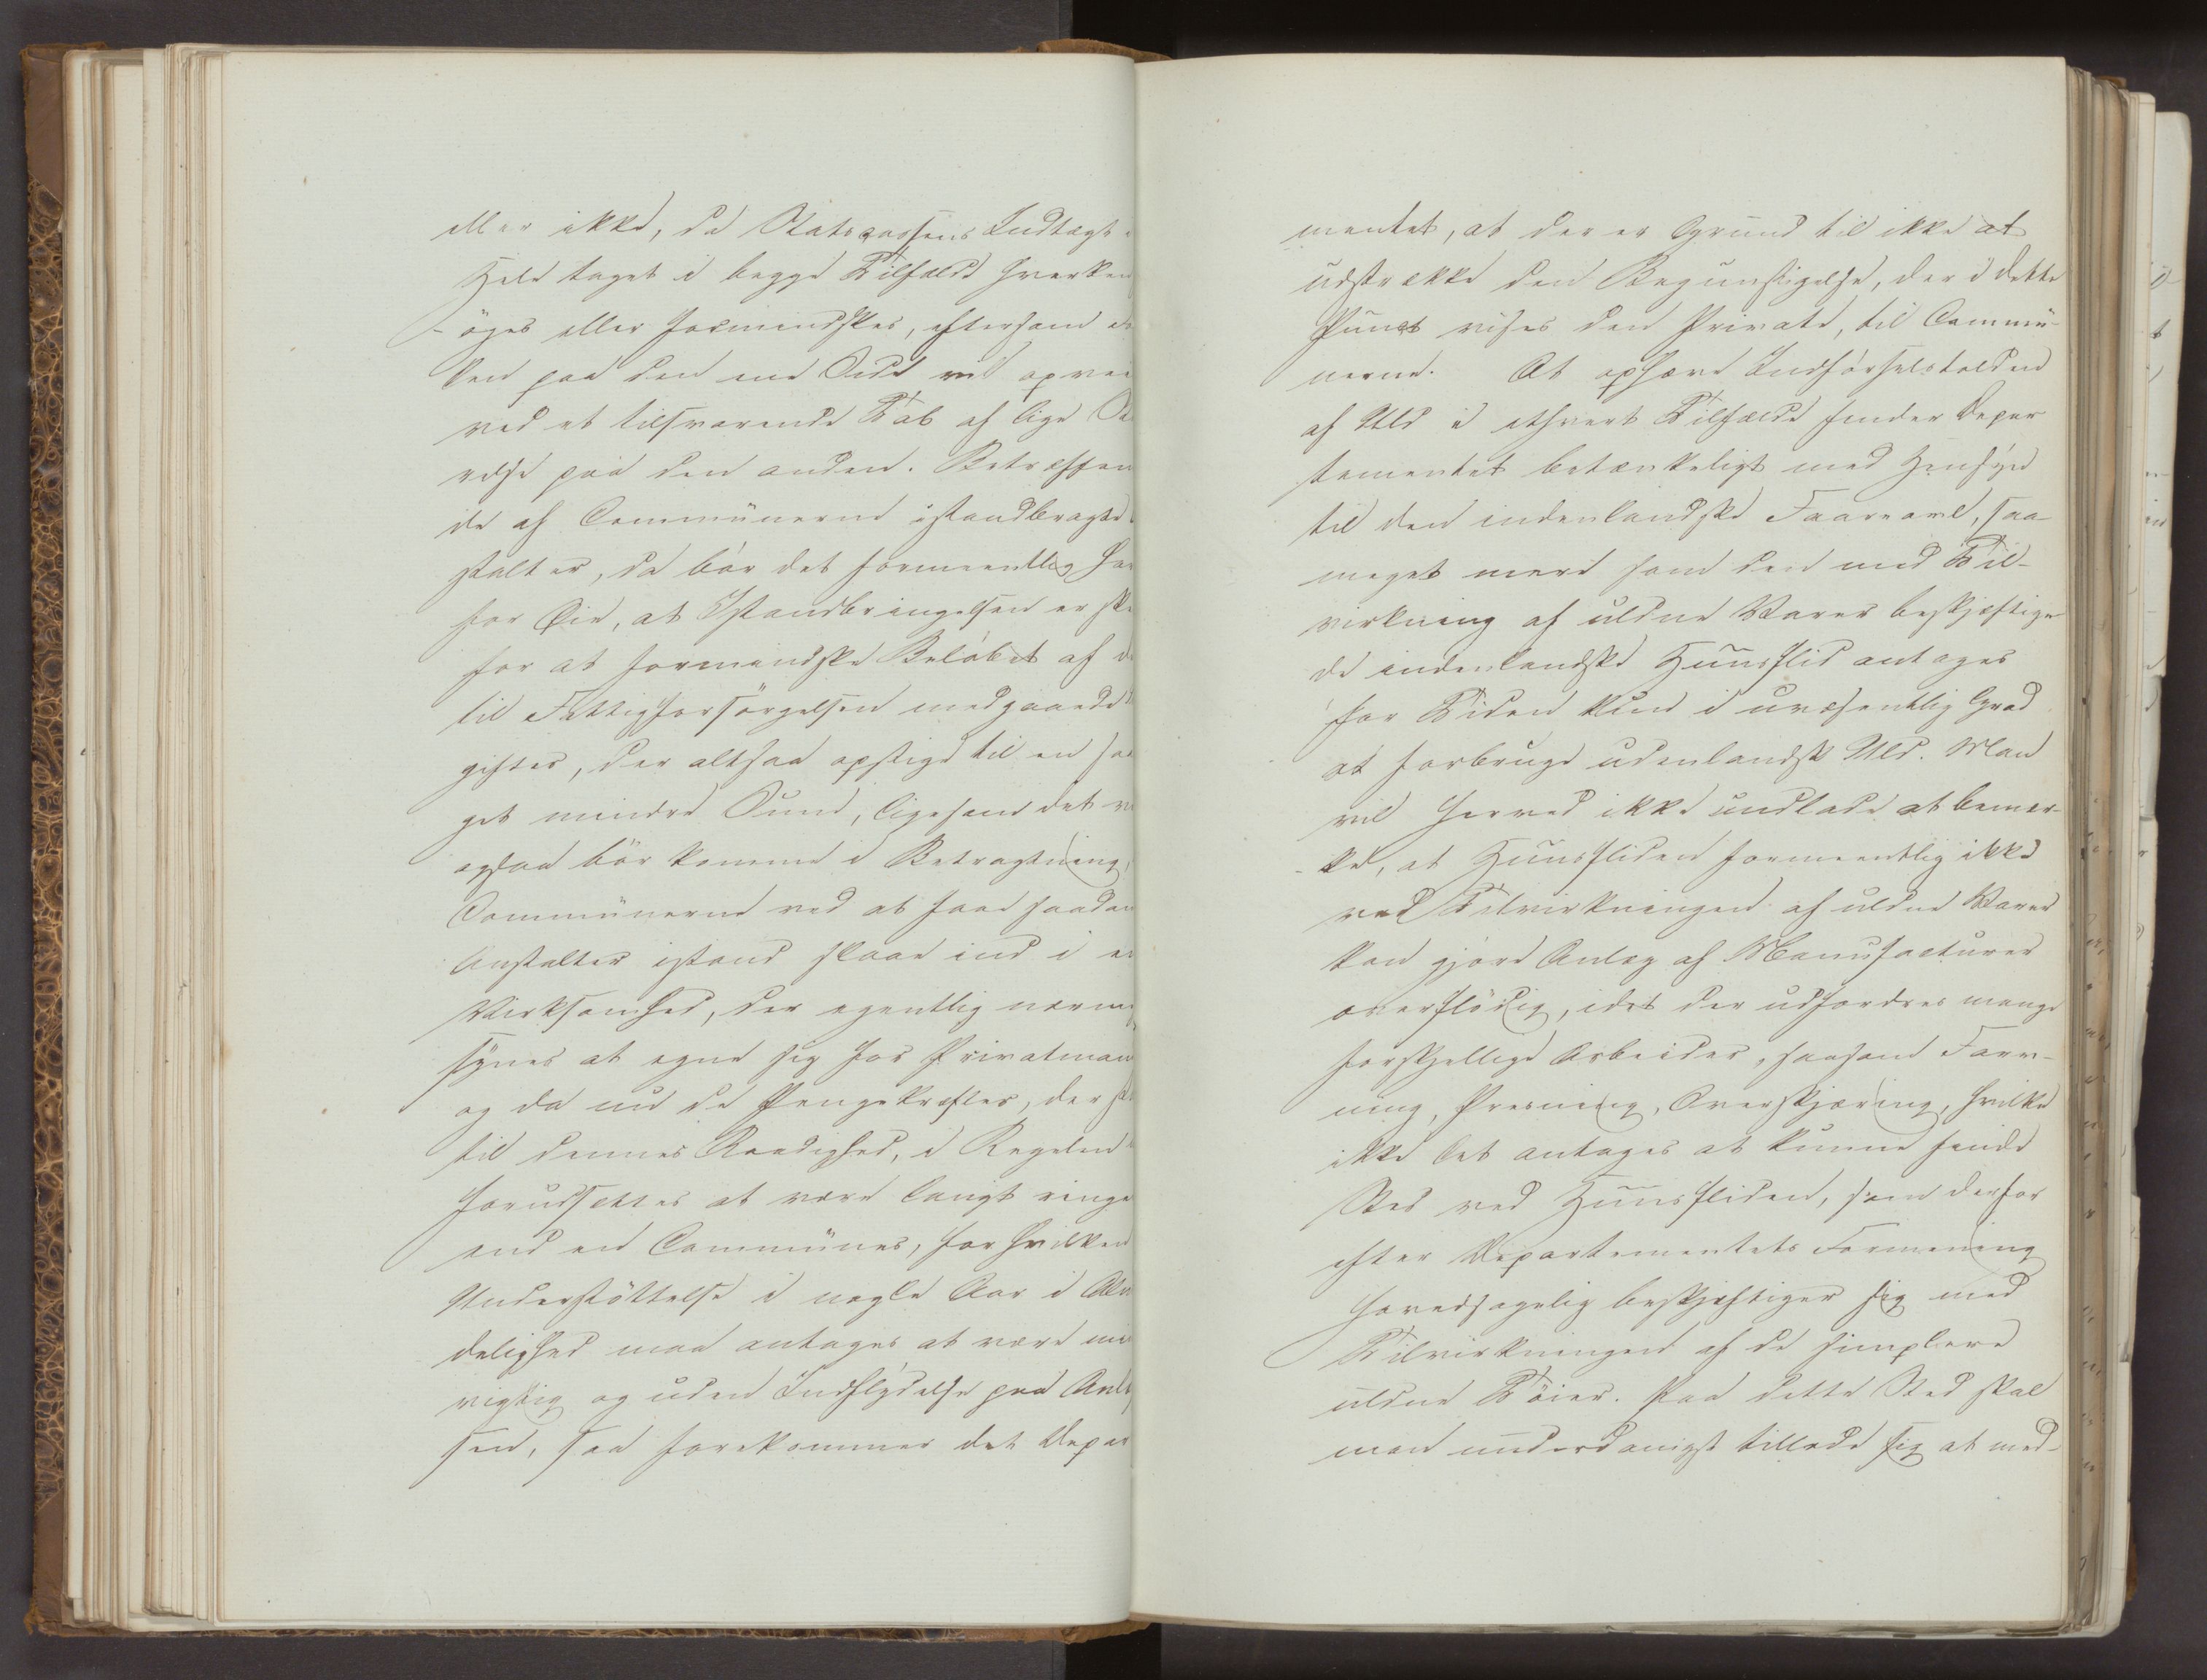 eller ikke, da Statscassens Indtægt i
Hele taget i begge Tilfælde hverken
öges eller formindskes, eftersom
den paa den ene Side vil opvei
ved et tilsvarende Tab af lige
relse paa den anden. Betræffen
de af Communerne istandbragte
stalter, da bör det formeentlig ha
for Øie, at Istandbringelsen er ske
for at formindske Beløbet af de
til Fattigforsörgelsen medgaaede
gifter, der altsaa opstige til en saa
get mindre Sum, ligesom det
ogsaa bör komme i Betragtning,
Communerne ved at faae saadan
Anstalter istand slaae ind i en
Virksomhed, der egentlig nærm
synes at egne sig for Privatmand
og da nu de Pengekræfter, der
til dennes Raadighed, i Regelen
forudsættes at være langt ringe
end en Communes, for hvilken
Understöttelse i nogle Aar i Alm
delighed maa antages at være min
vigtig og uden Indflydelse paa Anl
sen, saa forekommer det Depar
mentet, at der er Grund til ikke at
udstrække den Begunstigelse, der i dette
Punct vises den Private, til Commu-
nerne. At ophæve Indförselstolden
af Uld i ethvert Tilfælde finder Depar
tementet betænkeligt med Hensyn
til den indenlandske Faareavl, saa
meget mere som den med Til-
virkning af uldne Varer beskjæftige
de indenlandske Huusflid antages
for Tiden kun i uvæsentlig Grad
at forbruge udenlandsk Uld. Man
vil herved ikke undlade at bemær-
ke, at Huusfliden formeentlig ikke
ved Tilvirkningen af uldne Varer
kan gjöre Anlæg af Manufacturer
overflödig, idet der udfordres mange
forskjellige Arbeider, saasom Farv-
ning, Presning, Overskjæring, hvilke
ikke let antages at kunne finde
Sted ved Huusfliden, som derfor
efter Departementets Formening
hovedsagelig beskjæftiger sig med
Tilvirkningen af de simplere
uldne Töier. Paa dette Sted skal
man underdanigst tillade sig at med-